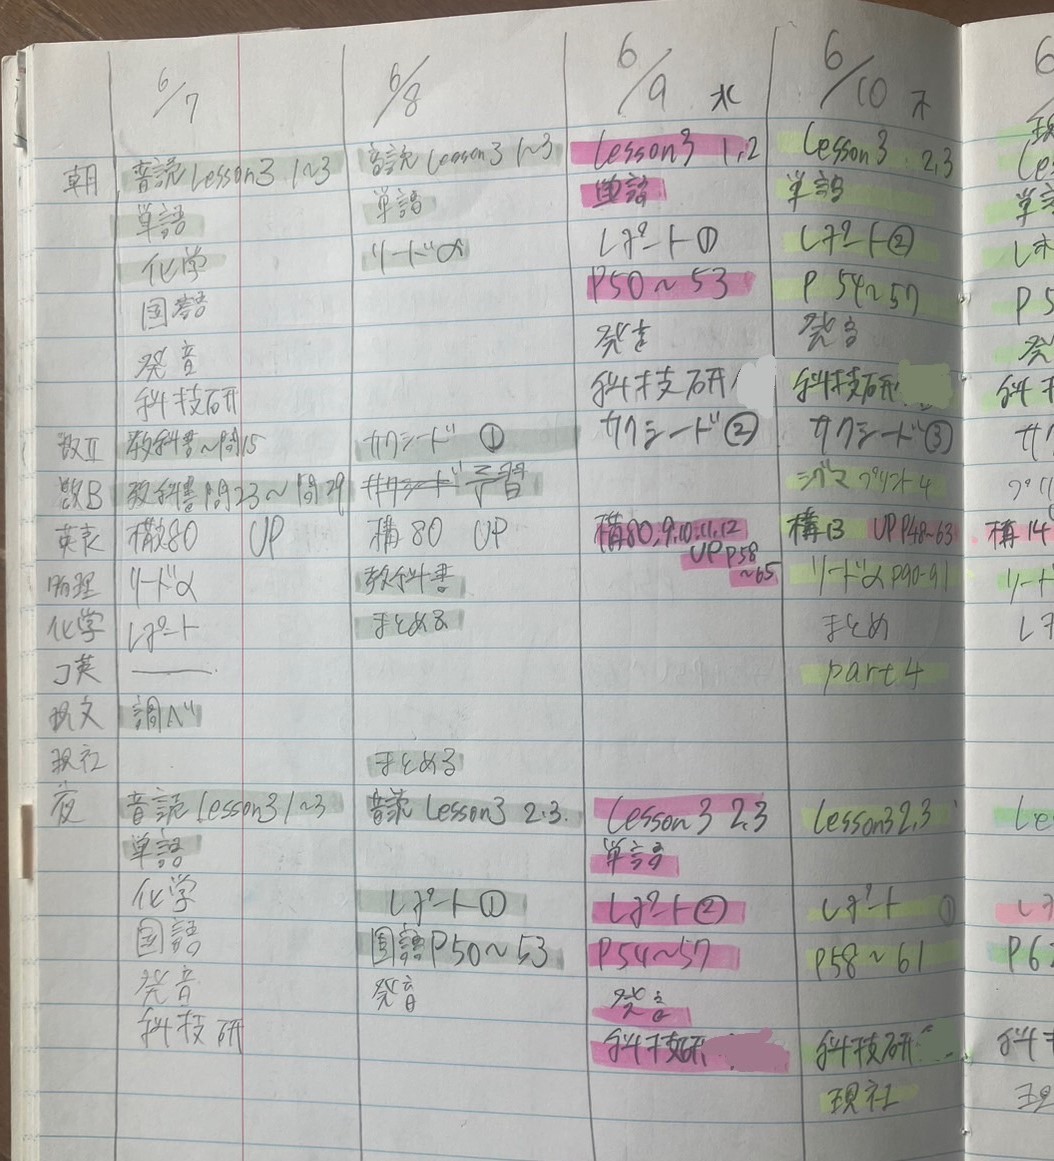 6/7 6/8 6/9 水 6/10 木 6
朝 音読 Lesson3 1~3 音読 Lesson3 1~3 Lesson3 1,2 Lesson3 2,3
単語 単語 単語 単語
化学 リードα レポート① レポート②
国語 P50~53 P 54~57
発音 発音 発音
科技研 科技研 科技研
数Ⅱ 教科書~問15 サクシード ① サクシード② サクシード③
数B 教科書問23~問29 予習 シグマ プリント4
英表 構80 UP 構80 UP 構80,9,10,11,12 構13 UP P48~63 構14
UP P58
~65
物理 リードα 教科書 リードα P90-91
化学 レポート まとめる まとめ
コ英 part4
現文 調べ
現社 まとめる
夜 音読 Lesson3 1~3 音読 Lesson3 2.3. Lesson3 2,3 Lesson3 2,3
単語 単語
化学 レポート① レポート② レポート ①
国語 国語P50~53 P54~57 P58~61 P62
発音 発音 発音
科技研 科技研 科技研
現社